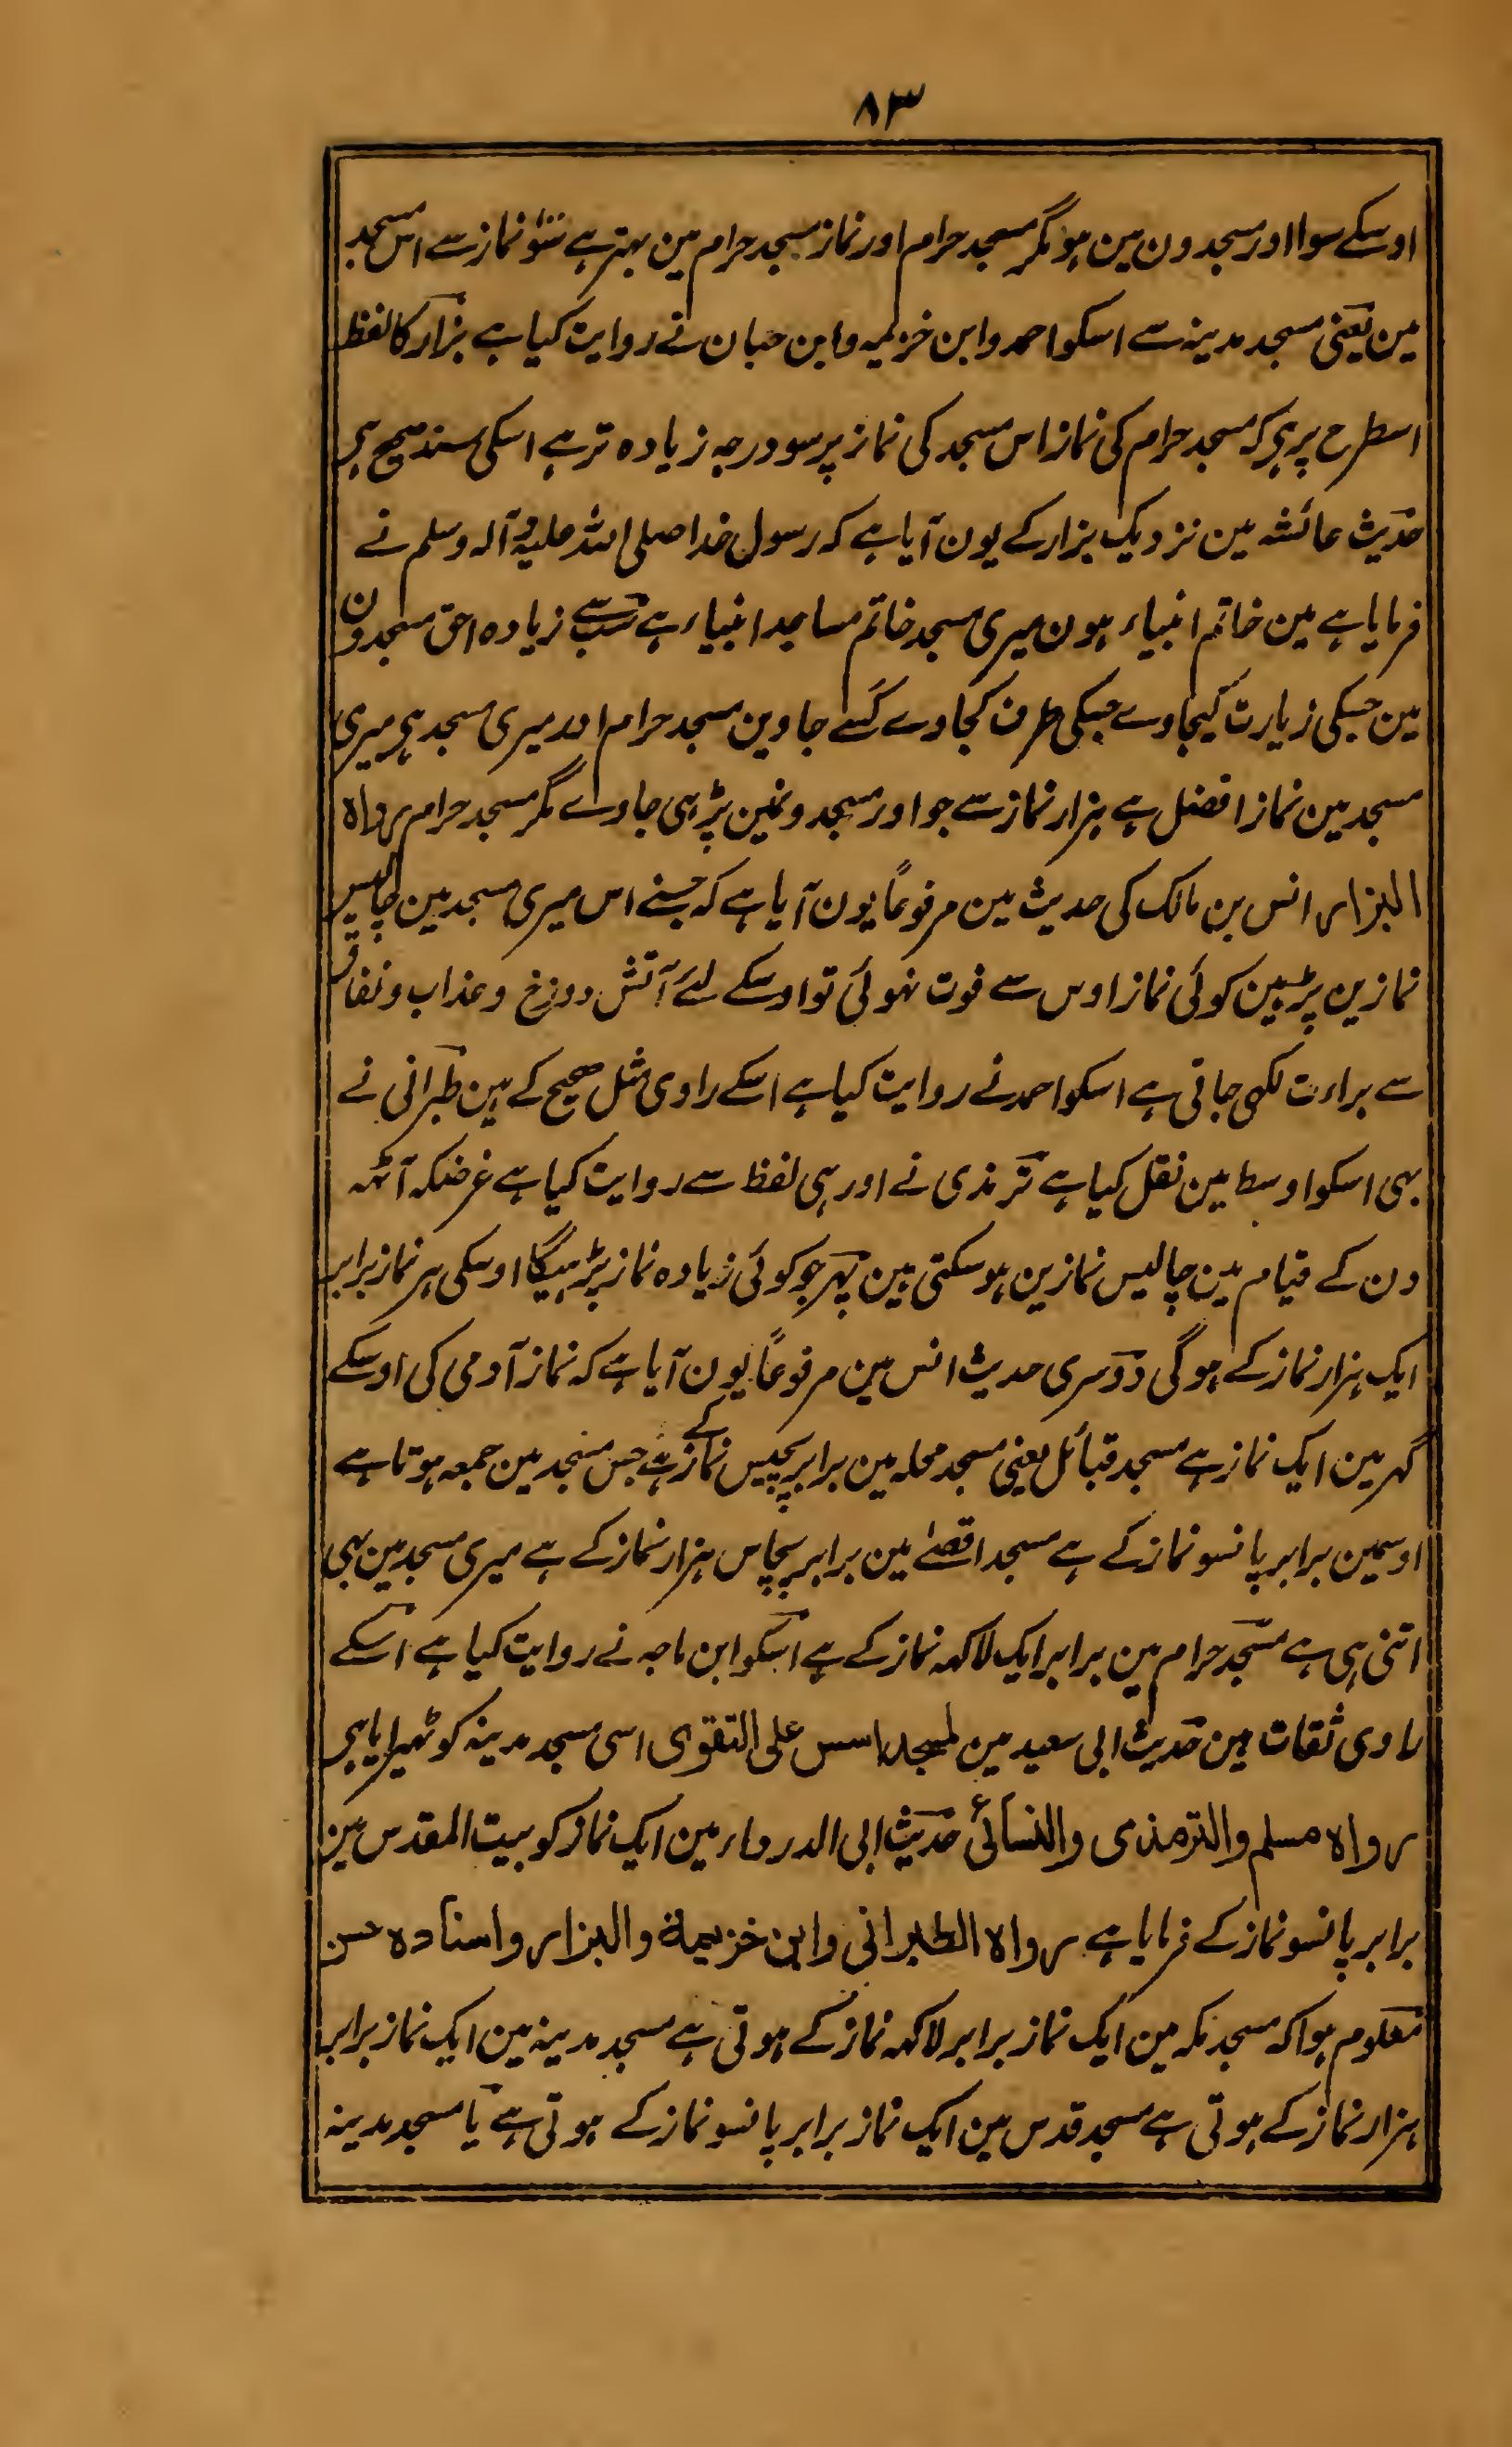 ۸۳
اوسکے سوا اور مسجدون مین ہو مگر مسجد حرام اور نماز مسجد حرام مین بہتر ہے سَو نماز سے اس مسجد
مین یعنی مسجد مدینہ سے اسکو احمد وابن خزیمہ وابن حبان نے روایت کیا ہے بزار کا لفظ
اسطرح پر ہی کہ مسجد حرام کی نماز اس مسجد کی نماز پر سو درجہ زیادہ تر ہے اسکی سند صحیح ہی
حدیث عائشہ مین نزدیک بزار کے یون آیا ہے کہ رسول خدا صلی اللہ علیہ وآلہ وسلم نے
فرمایا ہے مین خاتم انبیاء ہون میری مسجد خاتم مساجد انبیاء ہے سب سے زیادہ احق مسجدون
مین جسکی زیارت کیجاوے جسکی طرف کجاوے کَسے جاوین مسجد حرام اور میری مسجد ہی میری
مسجد مین نماز افضل ہے ہزار نماز سے جو اور مسجدونمین پڑہی جاوے مگر مسجد حرام رواہ
البزار انس بن مالک کی حدیث مین مرفوعاً یون آیا ہے کہ جسنے اس میری مسجد مین چالیس
نمازین پڑہین کوئی نماز اوس سے فوت نہوئی تو اوسکے لئے آتش دوزخ و عذاب و نفاق
سے براءت لکہی جاتی ہے اسکو احمد نے روایت کیا ہے اسکے راوی مثل صحیح کے ہین طبرانی نے
بہی اسکو اوسط مین نقل کیا ہے ترمذی نے اور ہی لفظ سے روایت کیا ہے غرضکہ آٹہہ
دن کے قیام مین چالیس نمازین ہو سکتی ہین پہر جو کوئی زیادہ نماز پڑہیگا اوسکی ہر نماز برابر
ایک ہزار نماز کے ہوگی دوسری حدیث انس مین مرفوعاً یون آیا ہے کہ نماز آدمی کی اوسکے
گہر مین ایک نماز ہے مسجد قبائل یعنی مسجد محلہ مین برابر پچیس نماز کے ہے جس مسجد مین جمعہ ہوتا ہے
اوسمین برابر پانسو نماز کے ہے مسجد اقصےٰ مین برابر پچاس ہزار نماز کے ہے میری مسجد مین بہی
اتنی ہی ہے مسجد حرام مین برابر ایک لاکہہ نماز کے ہے اسکو ابن ماجہ نے روایت کیا ہے اسکے
راوی ثقات ہین حدیث ابی سعید مین لمسجد اسس علی التقوی اسی مسجد مدینہ کو ٹہیرایا ہی
رواہ مسلم والترمذی والنسائی حدیث ابی الدرداء مین ایک نماز کو بیت المقدس مین
برابر پانسو نماز کے فرمایا ہے رواہ الطبرانی وابن خزیمة والبزار واسنادہ حسن
معلوم ہوا کہ مسجد مکہ مین ایک نماز برابر لاکہہ نماز کے ہوتی ہے مسجد مدینہ مین ایک نماز برابر
ہزار نماز کے ہوتی ہے مسجد قدس مین ایک نماز برابر پانسو نماز کے ہوتی ہے یا مسجد مدینہ